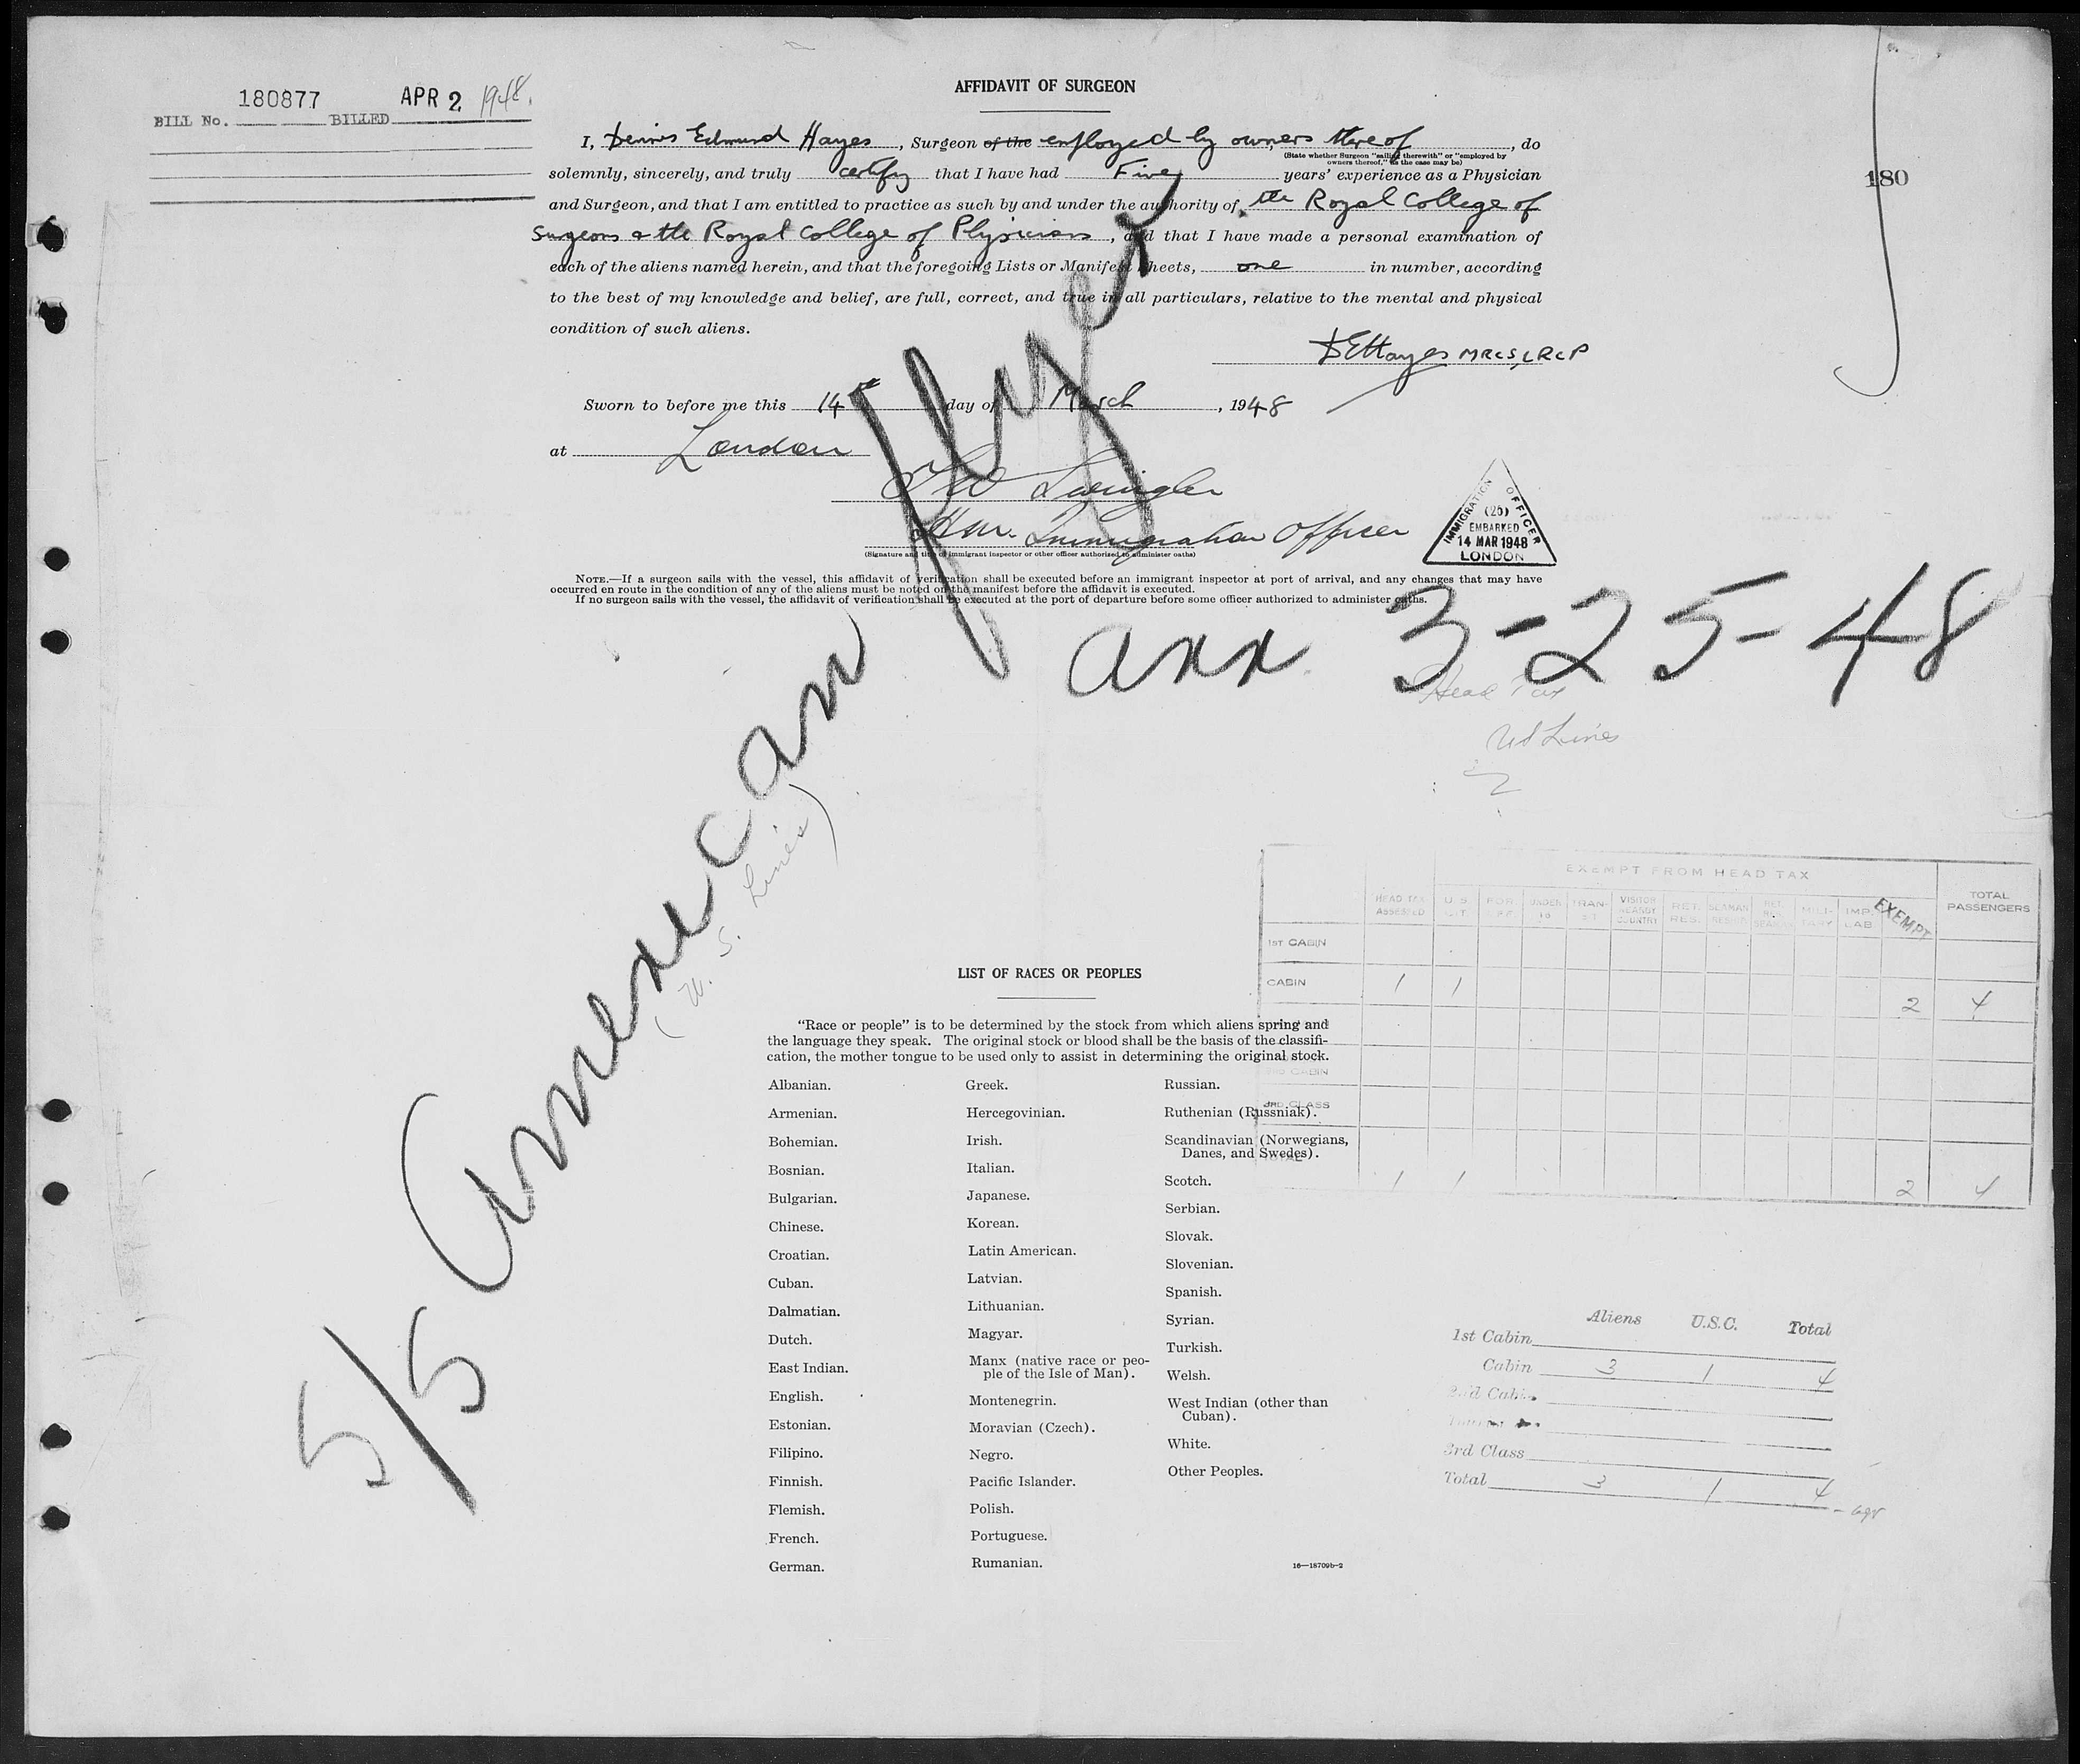 180877 APR 2 1948.
BILL No. BILLED
AFFIDAVIT OF SURGEON
I, Dennis Edmund Hayes, Surgeon of the employed by owners thereof, do
(State whether Surgeon "sailing therewith" or "employed by
owners thereof," as the case may be)
solemnly, sincerely, and truly certify that I have had Five years' experience as a Physician
180
and Surgeon, and that I am entitled to practice as such by and under the authority of the Royal College of
Surgeons & the Royal College of Physicians, and that I have made a personal examination of
each of the aliens named herein, and that the foregoing Lists or Manifest Sheets, one in number, according
to the best of my knowledge and belief, are full, correct, and true in all particulars, relative to the mental and physical
condition of such aliens.
DEHayes MRCS, LRCP
Sworn to before me this 14th day of March, 1948
at London
H.M. Immigration Officer
(Signature and title of immigrant inspector or other officer authorized to administer oaths)
IMMIGRATION OFFICER
(26)
EMBARKED
14 MAR 1948
LONDON
NOTE.—If a surgeon sails with the vessel, this affidavit of verification shall be executed before an immigrant inspector at port of arrival, and any changes that may have
occurred en route in the condition of any of the aliens must be noted on the manifest before the affidavit is executed.
If no surgeon sails with the vessel, the affidavit of verification shall be executed at the port of departure before some officer authorized to administer oaths.
S/S American Flyer
(U. S. Lines)
arr 3-25-48
Head Tax
US Lines
?
EXEMPT FROM HEAD TAX
HEAD TAX ASSESSED U.S. CIT. FOR. OFF. UNDER 16 TRAN- SIT VISITOR NEARBY COUNTRY RET. RES. SEAMAN MILI- TARY IMP. LAB. EXEMPT TOTAL PASSENGERS
1ST CABIN
CABIN 1 1 2 4
2ND CABIN
3RD CLASS
TOTAL 1 1 2 4
LIST OF RACES OR PEOPLES
"Race or people" is to be determined by the stock from which aliens spring and
the language they speak. The original stock or blood shall be the basis of the classifi-
cation, the mother tongue to be used only to assist in determining the original stock.
Albanian.
Armenian.
Bohemian.
Bosnian.
Bulgarian.
Chinese.
Croatian.
Cuban.
Dalmatian.
Dutch.
East Indian.
English.
Estonian.
Filipino.
Finnish.
Flemish.
French.
German.
Greek.
Hercegovinian.
Irish.
Italian.
Japanese.
Korean.
Latin American.
Latvian.
Lithuanian.
Magyar.
Manx (native race or peo-
ple of the Isle of Man).
Montenegrin.
Moravian (Czech).
Negro.
Pacific Islander.
Polish.
Portuguese.
Rumanian.
Russian.
Ruthenian (Russniak).
Scandinavian (Norwegians,
Danes, and Swedes).
Scotch.
Serbian.
Slovak.
Slovenian.
Spanish.
Syrian.
Turkish.
Welsh.
West Indian (other than
Cuban).
White.
Other Peoples.
16—18709b-2
Aliens U.S.C. Total
1st Cabin
Cabin 3 1 4
2nd Cabin
3rd Class
Total 3 1 4